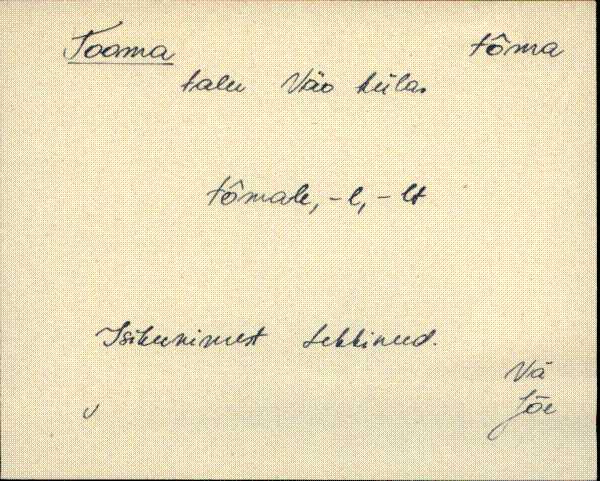 Tooma tôma
talu Väo külas
tômale, -l, -lt
Isikunimest tekkinud.
Vä
Jõe